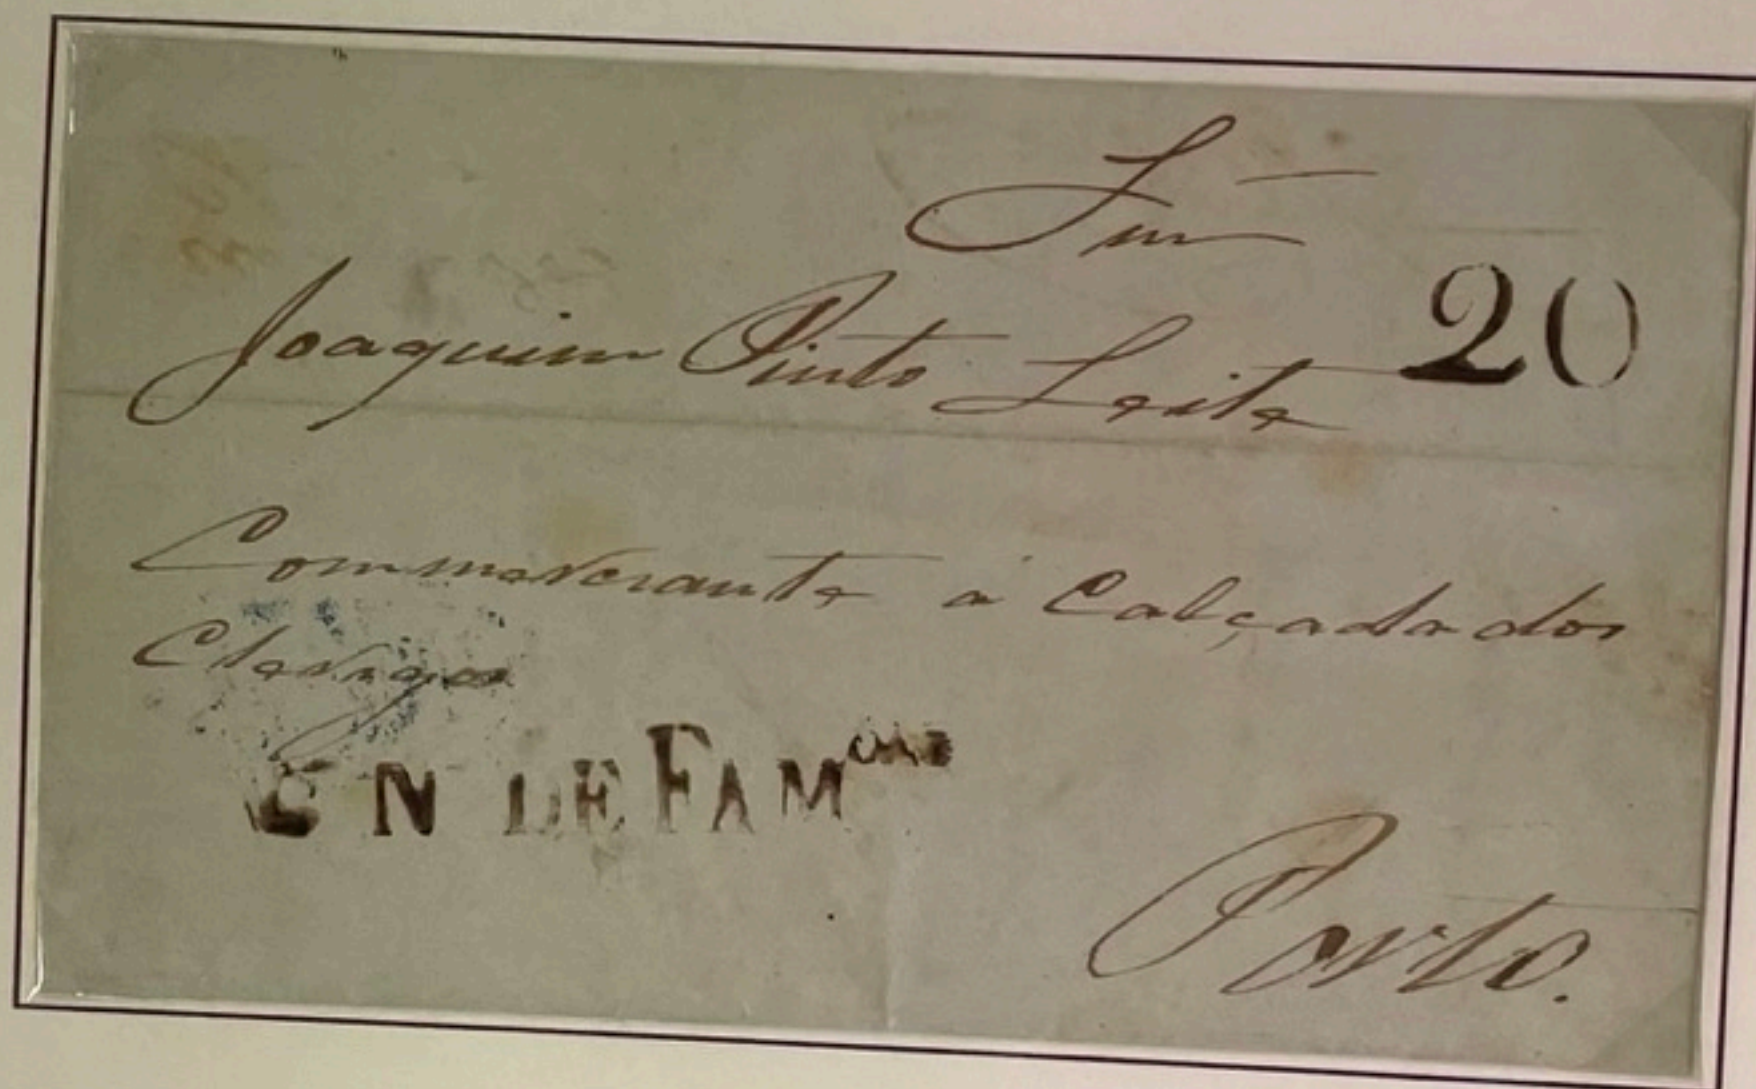 Snr
20
Joaquim Pinto Leite
Commerciante á Calçada dos
Clerigos
N DE FAM
Porto.